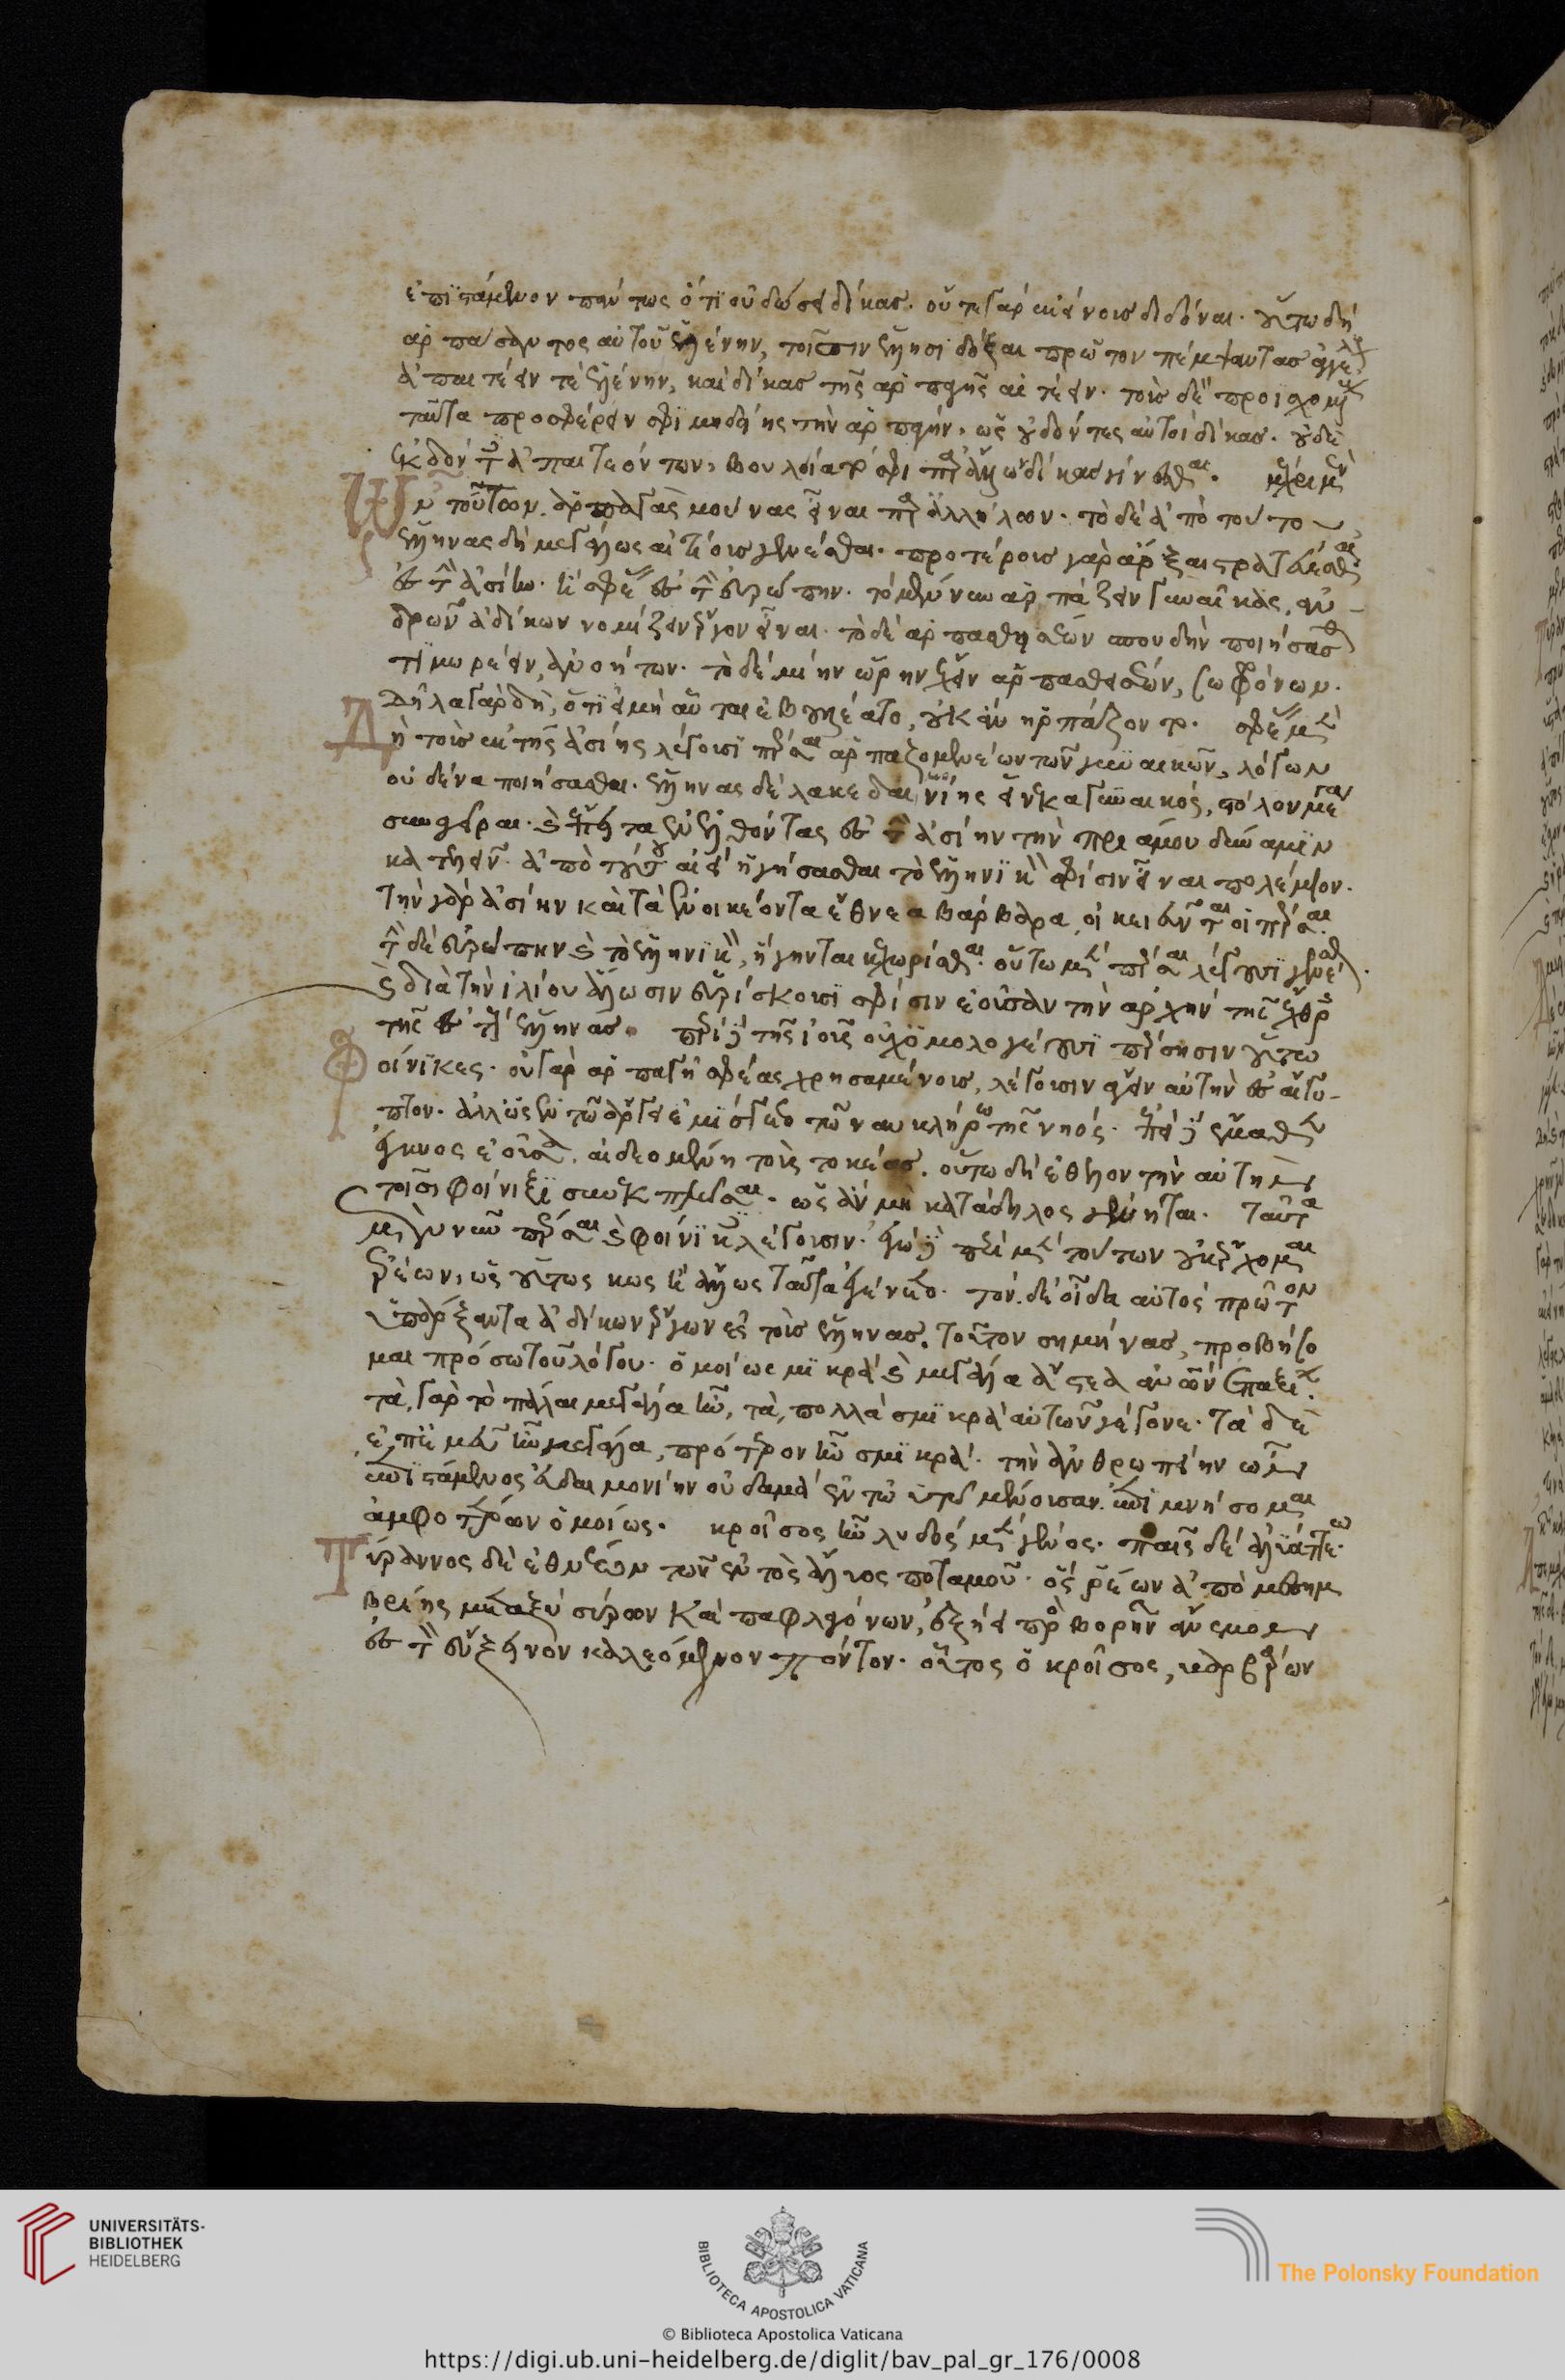 ἐπϊστάμενον πάντως ὅτϊ οὐ δώσει δίκας. οὔτε γὰρ ἐκείνους διδόναι. οὕτω δὴ
ἁρπάσαντος αὐτοῦ ἑλένην, τοῖσιν ἕλλησι δόξαι πρῶτον πέμψαντας ἀγγέλους
ἀπαιτέειν τὲ ἑλένην, καὶ δίκας τῆς ἁρπαγῆς αἰτέειν. τοὺς δὲ προϊσχομένων
ταῦτα προσφέρειν σφι μηδείης τὴν ἁρπαγήν. ὡς οὐ δόντες αὐτοὶ δίκας. οὐδὲ
ἐκδόντες ἀπαιτεόντων, βουλοίατό σφι παρ' ἄλλων δίκας γίνεσθαι. μέχρι μὲν
ὦν τούτων. ἁρπαγὰς μούνας εἶναι παρ' ἀλλήλων. τὸ δὲ ἀπὸ τούτου
ἕλληνας δὴ μεγάλως αἰτίους γενέσθαι. προτέρους γὰρ ἄρξαι στρατεύεσθαι
ἐς τὴν ἀσίην. ἢ σφέας ἐς τὴν εὐρώπην. τὸ μέν νυν ἁρπάζειν γυναῖκας, ἀν-
δρῶν ἀδίκων νομίζειν ἔργον εἶναι. τὸ δὲ ἁρπασθεισέων σπουδὴν ποιήσασθαι
τϊμωρέειν, ἀνοήτων. τὸ δὲ μίην ὤρην ἔχειν ἁρπασθεισέων, σωφρόνων.
Δῆλα γὰρ δὴ, ὅτι εἰ μὴ αὗται ἐβουλέατο, οὐκ ἂν ἡρπάζοντο. σφέας μὲν
δὴ τοὺς ἐκ τῆς ἀσίης λέγουσϊ πέρσαι ἁρπαζομενέων τῶν γυναικῶν, λόγον
οὐδένα ποιήσασθαι. ἕλληνας δὲ λακεδαιμονίης εἵνεκα γυναικός, στόλον μέγαν
συναγεῖραι. καὶ ἔπειτα ἐλθόντας ἐς τὴν ἀσίην τὴν πριάμου δύναμιν
κατελεῖν. ἀπὸ τούτου αἰεὶ ἡγήσασθαι τὸ ἑλληνϊκὸν σφίσιν εἶναι πολέμιον.
τὴν γὰρ ἀσίην καὶ τὰ ἐνοικέοντα ἔθνεα βάρβαρα, οἰκειεῦνται οἱ πέρσαι.
τὴν δὲ εὐρώπην καὶ τὸ ἑλληνϊκὸν, ἥγηνται κεχωρίσθαι. οὕτω μὲν πέρσαι λέγουσϊ γενέσθαι.
καὶ διὰ τὴν ἰλίου ἅλωσιν εὑρίσκουσϊ σφίσιν ἐοῦσαν τὴν ἀρχὴν τῆς ἔχθρης
τῆς ἐς τοὺς ἕλληνας. περὶ δὲ τῆς ἰοῦς οὐχ ὁμολογέουσϊ πέρσησιν οὕτω
φοίνϊκες. οὐ γὰρ ἁρπαγῇ σφέας χρησαμένους, λέγουσιν ἀγαγεῖν αὐτὴν ἐς αἴγυ-
πτον. ἀλλ' ὡς ἐν τῶ ἄργεϊ ἐμίσγετο τῶ ναυκλήρω τῆς νηός. ἐπεὶ δὲ ἔμαθεν
ἔγκυος ἐοῦσα, αἰδεομένη τοὺς τοκέας. οὕτω δὴ ἐθελοντὴν αὐτὴν
τοῖσι φοίνιξϊ συνεκπλῶσαι. ὡς ἂν μὴ κατάδηλος γένηται. ταῦτα
μέν νυν πέρσαι καὶ φοίνϊκες λέγουσιν. ἐγὼ δὲ περὶ μὲν τούτων οὐκ ἔρχομαι
ἐρέων, ὡς οὕτως κως ἢ ἄλλως ταῦτα ἐγένετο. τὸν δὲ οἶδα αὐτὸς πρῶτον
ὑπάρξαντα ἀδίκων ἔργων ἐς τοὺς ἕλληνας. τοῦτον σημήνας, προβήσο
μαι πρόσω τοῦ λόγου. ὁμοίως μϊκρὰ καὶ μεγάλα ἄστεα ἀνθρώπων ἐπεξιών.
τὰ, γὰρ τὸ πάλαι μεγάλα ἦν, τὰ, πολλὰ σμϊκρὰ αὐτῶν γέγονε. τὰ δὲ
ἐπ' ἐμεῦ ἦν μεγάλα, πρότερον ἦν σμϊκρά. τὴν ἀνθρωπείην ὦν
ἐπϊστάμενος εὐδαιμονίην οὐδαμὰ ἐν τὠυτῶ μένουσαν. ἐπϊμνήσομαι
ἀμφοτέρων ὁμοίως. κροῖσος ἦν λυδὸς μὲν γένος. παῖς δὲ ἀλυάττεω.
τύραννος δὲ ἐθνέων τῶν ἐντὸς ἅλυος ποταμοῦ. ὃς ῥέων ἀπὸ μεσημ
βρίης μεταξὺ σύρων καὶ παφλαγόνων, ἐξίει πρὸς βορῆν ἄνεμον
ἐς τὸν εὔξεινον καλεόμενον πόντον. οὗτος ὁ κροῖσος, βαρβάρων
UNIVERSITÄTS-
BIBLIOTHEK
HEIDELBERG
BIBLIOTECA APOSTOLICA VATICANA
The Polonsky Foundation
© Biblioteca Apostolica Vaticana
https://digi.ub.uni-heidelberg.de/diglit/bav_pal_gr_176/0008